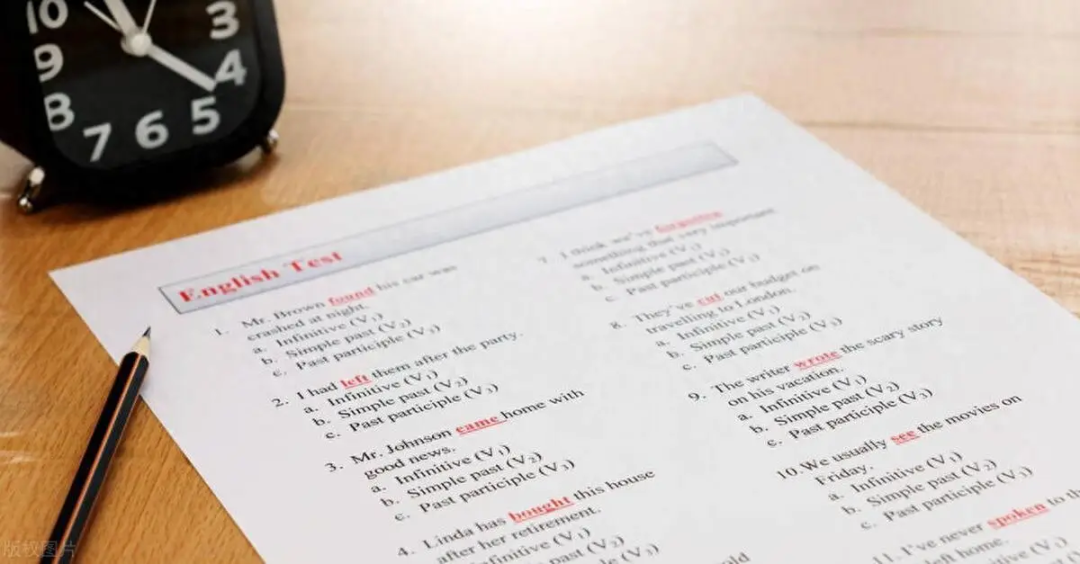 10
3
9
4
8
7 6 5
English Test
1. Mr. Brown found his car was
crashed at night.
a. Infinitive (V₁)
b. Simple past (V₂)
c. Past participle (V₃)
2. I had left them after the party.
a. Infinitive (V₁)
b. Simple past (V₂)
c. Past participle (V₃)
3. Mr. Johnson came home with
good news.
a. Infinitive (V₁)
b. Simple past (V₂)
c. Past participle (V₃)
4. Linda has bought this house
after her retirement.
nfinitive (V₁)
past (V₂)
(V₃)
7. I think we've forgotten
something that very important
a. Infinitive (V₁)
b. Simple past (V₂)
c. Past participle (V₃)
8. They've cut our budget on
travelling to London.
a. Infinitive (V₁)
b. Simple past (V₂)
c. Past participle (V₃)
9. The writer wrote the scary story
on his vacation.
a. Infinitive (V₁)
b. Simple past (V₂)
c. Past participle (V₃)
10. We usually see the movies on
Friday.
a. Infinitive (V₁)
b. Simple past (V₂)
c. Past participle (V₃)
11. I've never spoken to th
left home.
nfinitive (V₁)
版权图片